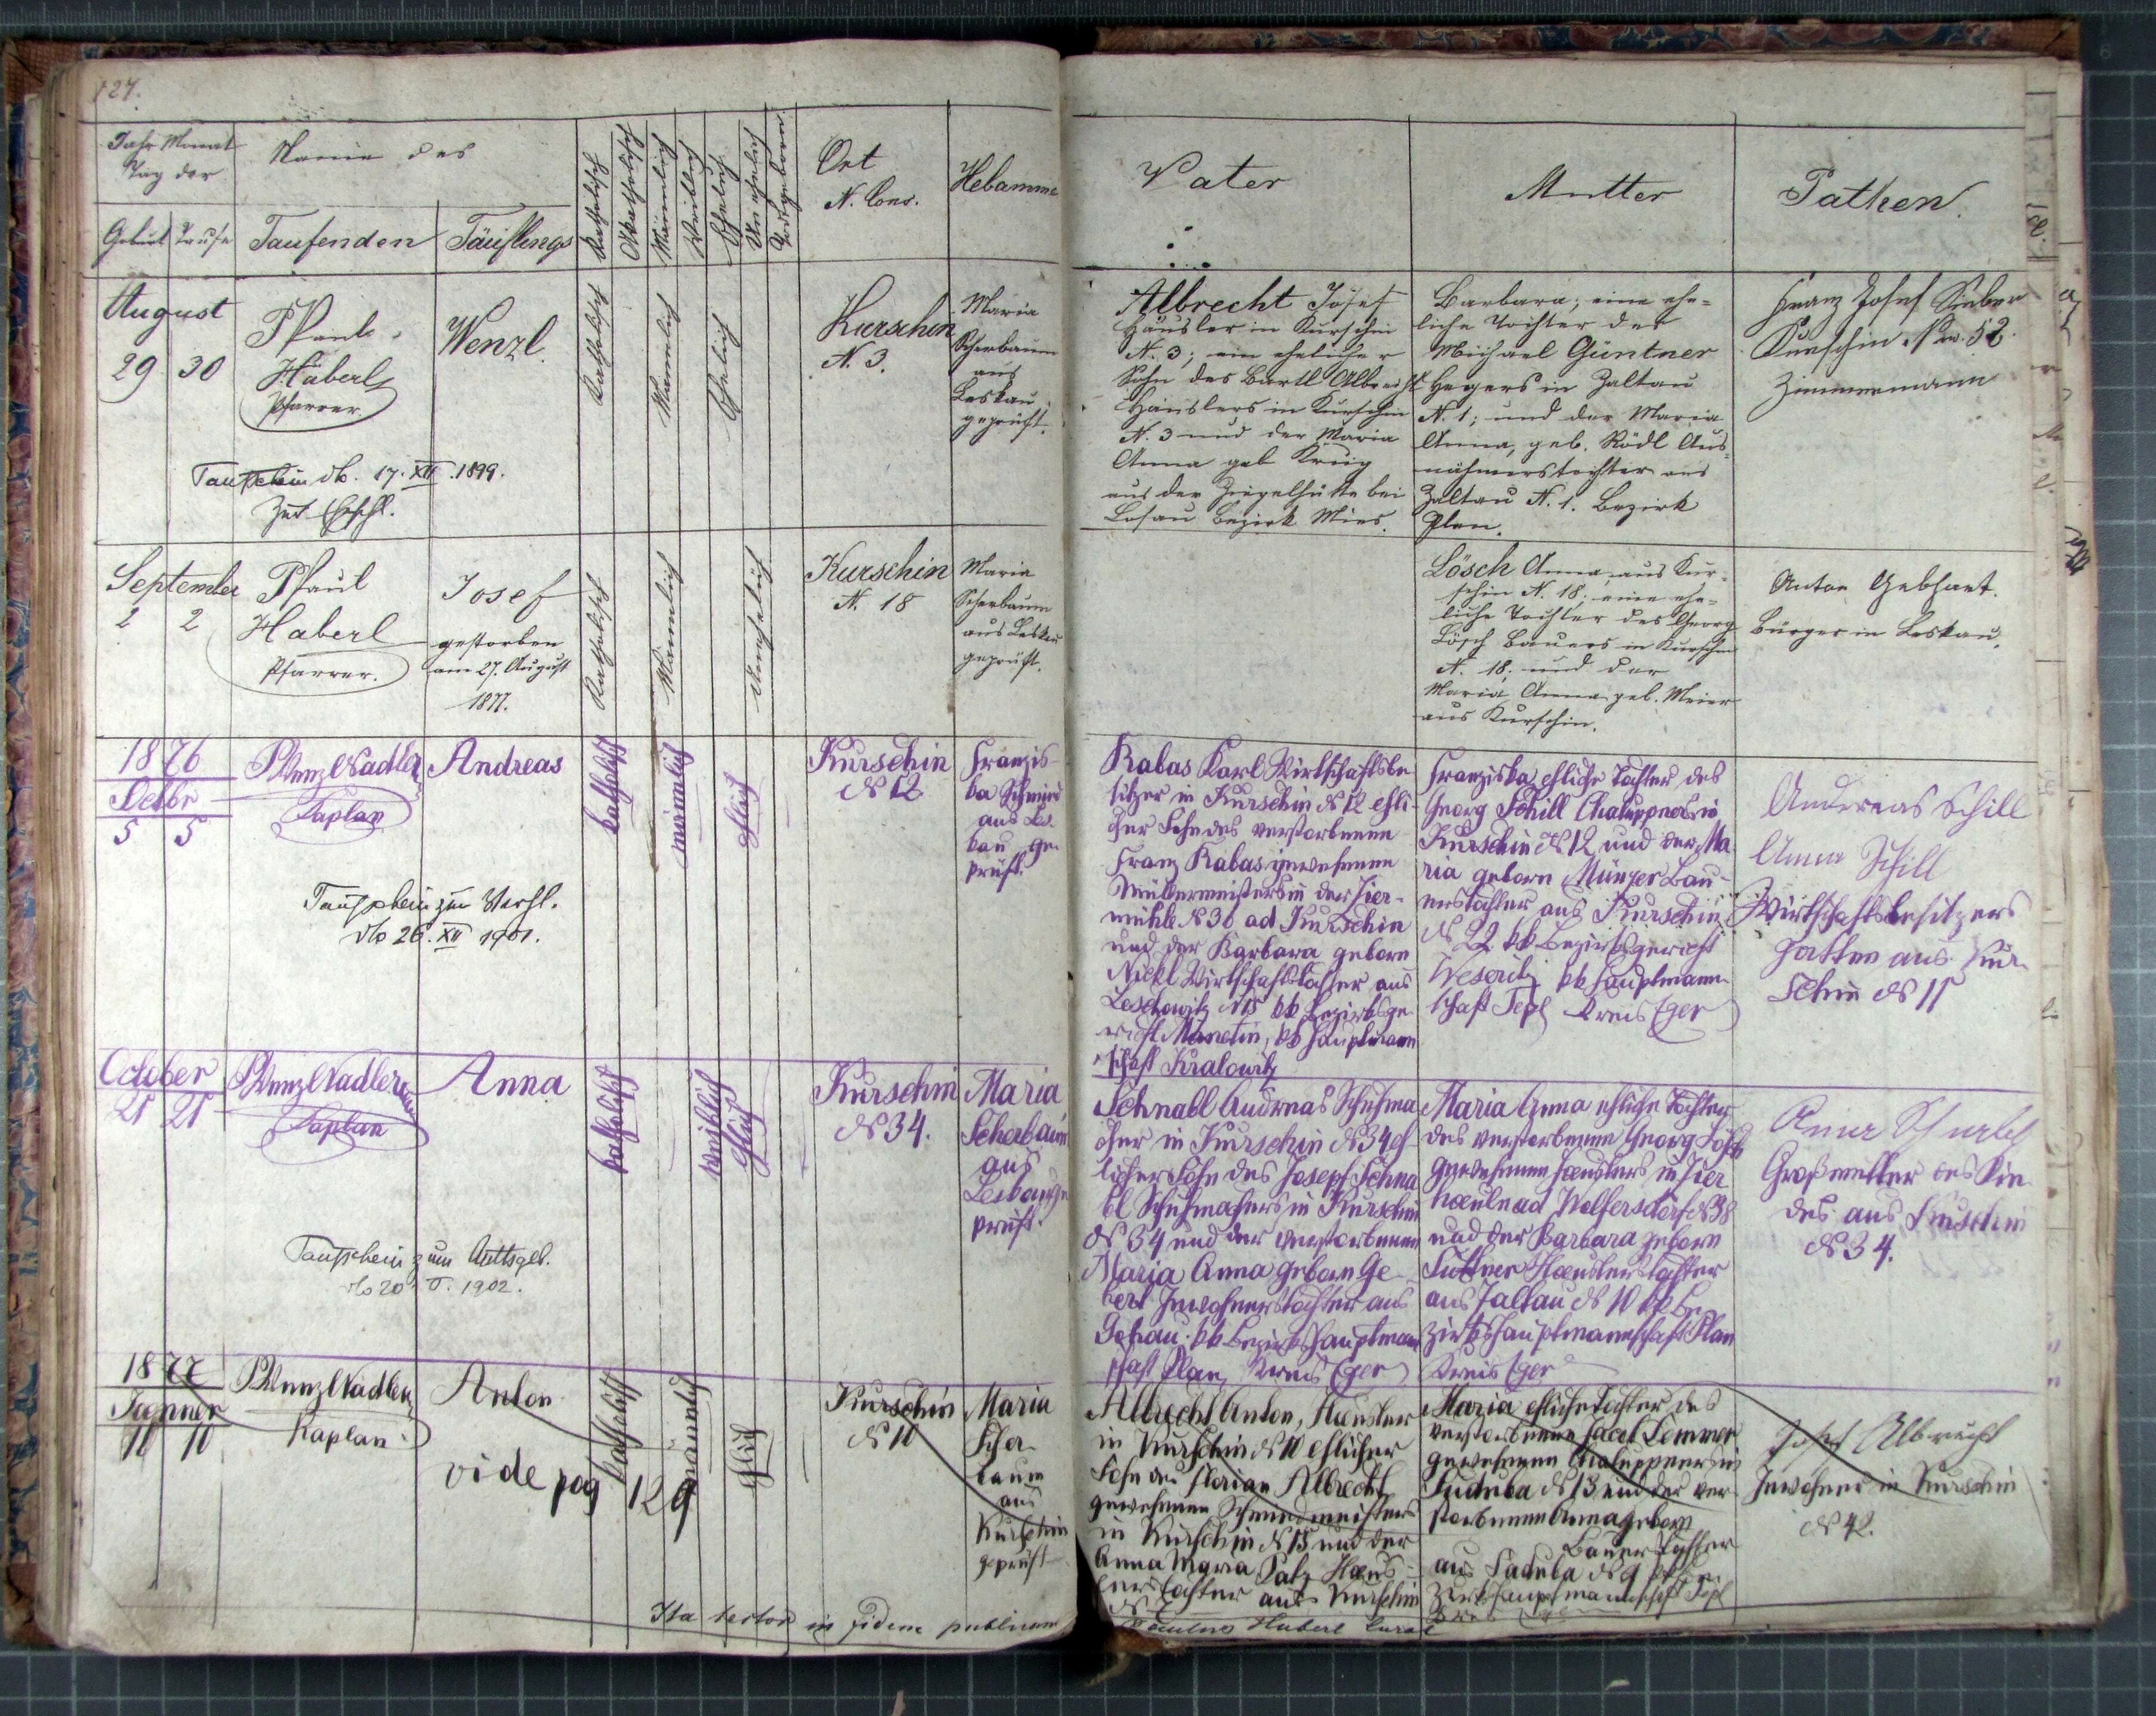 127.
Jahr Monat
Tag der
Geburt Taufe
Name des
Taufenden Täuflings
Katholisch
Akatholisch
Männlich
Weiblich
Ehelich
Unehelich
Ort
N. Cons.
Hebamme
Vater
Mutter
Pathen.
August
29 30
P Paul
Häberl
Pfarrer
Wenzl.
Katholisch
Männlich
Ehelich
Kurschin
N. 3.
Maria
Scherbaum
aus
Leskau
geprüft.
Taufschein do. 17. XII. 1899.
Albrecht Josef
Häusler in Kurschin
N. 3; ein ehelicher
Sohn des Bartl Albrecht
Häuslers in Kurschin
N. 3 und der Maria
Anna geb Krug
aus der Ziegelhütte bei
Losau Bezirk Mies.
Barbara; eine ehe-
liche Tochter des
Michael Güntner
Hegers in Zaltau
N. 1; und der Maria
Anna, geb. Rödl Aus-
nahmerstochter aus
Zaltau N. 1. Bezirk
Plan.
Franz Josef
Kurschin Nro. 52.
Zimmermann
September
2 2
P Paul
Haberl
Pfarrer.
Josef
gestorben
am 27. August
1877.
Katholisch
Männlich
Unehelich
Kurschin
N. 18
Maria
Scherbaum
aus Leskau
geprüft.
Lösch Anna, aus Kur-
schin N. 18; eine ehe-
liche Tochter des Georg
Lösch Bauers in Kurschin
N. 18; und der
Maria Anna geb. Meier
aus Kurschin.
Anton Gebhart.
Bürger in Leskau.
1876
Octbr
5 5
P Wenzl Nadler
Kaplan
Andreas
katholisch
männlich
ehlich
Kurschin
N 12
Franzis-
ka Schmied
aus Les-
kau ge-
prüft.
Taufschein zur Verehl.
do 26. XII 1901.
Kabas Karl Wirtschaftsbe
sitzer in Kurschin N 12 ehli-
cher Sohn des verstorbenen
Franz Kabas gewesenen
Müllermeisters in der Zier-
mühle N 36 ad Kurschin
und der Barbara geborn
Nickl Wirtschaftstochter aus
Leschowitz N 15 kk Bezirksge
richt Manetin, kk Hauptmann
schaft Kralowitz
Franziska ehliche Tochter des
Georg Schill Chaluppners in
Kurschin N 12 und der Ma
ria geborn Münzer Bau-
erstochter aus Kurschin
N 22 kk Bezirksgericht
Weseritz kk Hauptmann-
schaft Tepl Kreis Eger
Andreas Schill
Anna Schill
Wirtschaftsbesitzers
gatten aus Kur-
schin N 11
October
21 21
P Wenzl Nadler
Kaplan
Anna
katholisch
weiblich
ehlich
Kurschin
N 34.
Maria
Scherbaum
aus
Leskau ge
prüft.
Taufschein zum
do 20. 1902.
Schnabl Andreas Schuhma
cher in Kurschin N 34 eh
licher Sohn des Joseph Schna
bl Schuhmachers in Kurschin
N 34 und der verstorbenen
Maria Anna geborn Ge-
Inwohnerstochter aus
kk Bezirkshauptmann
schaft Plan, Kreis Eger
Maria Anna ehliche Tochter
des verstorbenen Georg
gewesenen Häuslers in
ad Wolfersdorf N 38
und der Barbara geborn
Häuslerstochter
aus Zaltau N 10 kk Be-
zirkshauptmannschaft Plan
Kreis Eger
Anna Schnabl
Großmutter des Kin
des aus Kurschin
N 34.
1877
Jänner
10 10
P Wenzl Nadler
Kaplan
Anton
vide pag 129
katholisch
männlich
ehlich
Kurschin
N 10
Maria
Scher-
baum
aus
Kurschin
geprüft
Albrecht Anton, Häusler
in Kurschin N 10 ehlicher
Sohn des Florian Albrecht
gewesenen Schmiedmeisters
in Kurschin N 15 und der
Anna Maria Häus-
lerstochter aus Kurschin
Maria ehliche Tochter des
verstorbenen
gewesenen Chaluppners in
N 13 und der ver-
storbenen Anna geborn
Bauerstochter
aus N 9 kk Be-
zirkshauptmannschaft Tepl
Josef Albrecht
Inwohner in Kurschin
N 42.
Ita testor in fidem publicam
Paulus Haberl